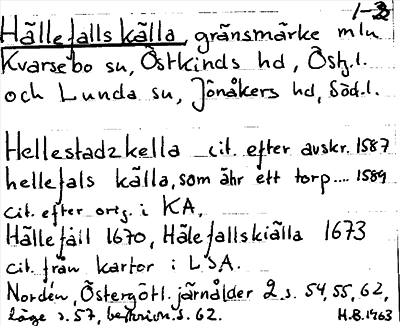 1-2
Hällefalls källa, gränsmärke mln
Kvarsebo sn, Östkinds hd, Östg.l.
och Lunda sn, Jönåkers hd, Söd.l.
Hellestadz kella cit. efter avskr. 1587
hellefals källa, som ähr ett torp.... 1589
cit. efter orig. i KA.
Hällefall 1670, Hälefallskiälla 1673
cit. från kartor i LSA.
Nordén, Östergötl. järnålder 2 s. 54, 55, 62,
läge s. 57, beskrivn. s. 62. H.B. 1963